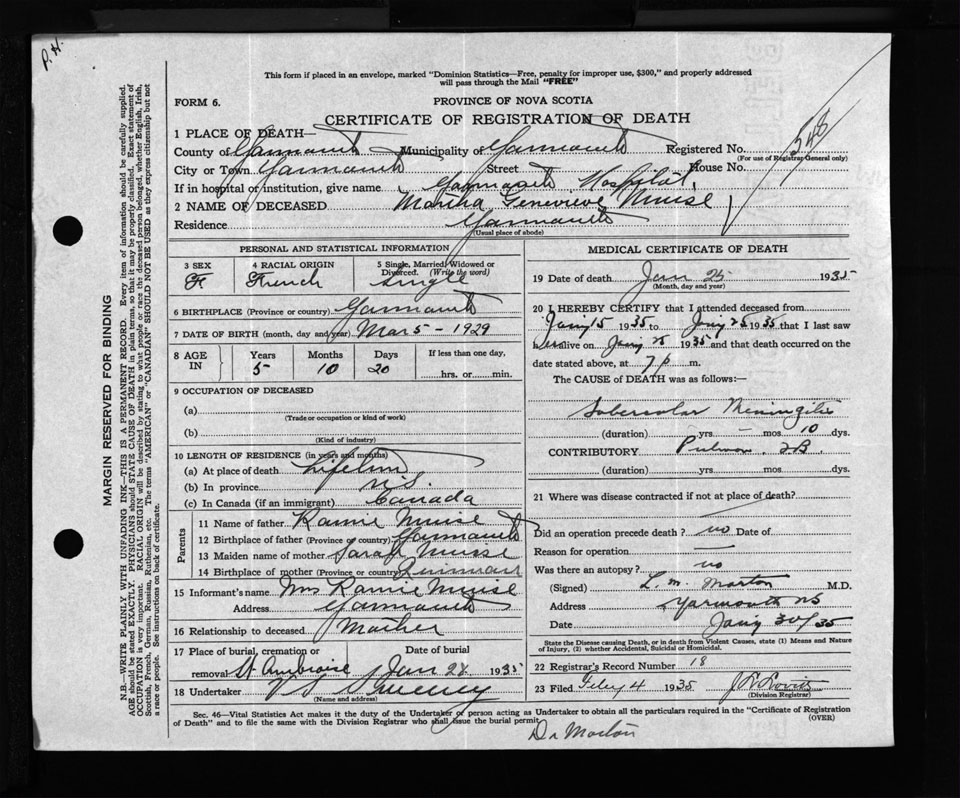 P. H.
This form if placed in an envelope, marked "Dominion Statistics—Free, penalty for improper use, $300," and properly addressed
will pass through the Mail "FREE"
FORM 6.
PROVINCE OF NOVA SCOTIA
CERTIFICATE OF REGISTRATION OF DEATH
548
1 PLACE OF DEATH—
County of Yarmouth Municipality of Yarmouth Registered No.
(For use of Registrar General only)
City or Town Yarmouth Street House No.
If in hospital or institution, give name Yarmouth Hospital
2 NAME OF DECEASED Martha Genevieve Muise
Residence Yarmouth
(Usual place of abode)
PERSONAL AND STATISTICAL INFORMATION
3 SEX F
4 RACIAL ORIGIN French
5 Single, Married, Widowed or Divorced. (Write the word) Single
6 BIRTHPLACE (Province or country) Yarmouth
7 DATE OF BIRTH (month, day and year) Mar 5 - 1929
8 AGE IN Years 5 Months 10 Days 20 If less than one day, hrs. or min.
9 OCCUPATION OF DECEASED
(a)
(Trade or occupation or kind of work)
(b)
(Kind of industry)
10 LENGTH OF RESIDENCE (in years and months)
(a) At place of death Lifetim
(b) In province N.S.
(c) In Canada (if an immigrant) Canada
Parents
11 Name of father Ramie Muise
12 Birthplace of father (Province or country) Yarmouth
13 Maiden name of mother Sarah Muise
14 Birthplace of mother (Province or country)
15 Informant's name Mrs Ramie Muise
Address Yarmouth
16 Relationship to deceased Mother
17 Place of burial, cremation or removal St Ambroise Date of burial Jan 28 1935
18 Undertaker V S Sweeney
(Name and address)
MEDICAL CERTIFICATE OF DEATH
19 Date of death Jan 25 1935
(Month, day and year)
20 I HEREBY CERTIFY that I attended deceased from
Jany 15 1935 to Jany 25 1935 that I last saw
her alive on Jany 25 1935 and that death occurred on the
date stated above, at 7 p m.
The CAUSE of DEATH was as follows:—
Meningitis
(duration) yrs. — mos. 10 dys.
CONTRIBUTORY Pulmon. T.B.
(duration) yrs. mos. dys.
21 Where was disease contracted if not at place of death?
Did an operation precede death? no Date of
Reason for operation —
Was there an autopsy? no
(Signed) L. M. Morton M.D.
Address Yarmouth NS
Date Jany 30/35
State the Disease causing Death, or in death from Violent Causes, state (1) Means and Nature
of Injury, (2) whether Accidental, Suicidal or Homicidal.
22 Registrar's Record Number 18
23 Filed Feby 4 1935
(Division Registrar)
Sec. 46—Vital Statistics Act makes it the duty of the Undertaker or person acting as Undertaker to obtain all the particulars required in the "Certificate of Registration
of Death" and to file the same with the Division Registrar who shall issue the burial permit.
(OVER)
Dr Morton
MARGIN RESERVED FOR BINDING
N.B.—WRITE PLAINLY WITH UNFADING INK—THIS IS A PERMANENT RECORD. Every item of information should be carefully supplied.
AGE should be stated EXACTLY. PHYSICIANS should STATE CAUSE OF DEATH in plain terms, so that it may be properly classified. Exact statement of
OCCUPATION is very important. RACIAL ORIGIN will be described by stating to what people or race the deceased person belonged, whether English, Irish,
Scottish, French, German, Russian, Ruthenian, etc. The terms "AMERICAN" or "CANADIAN" SHOULD NOT BE USED as they express citizenship but not
a race or people. See instructions on back of certificate.